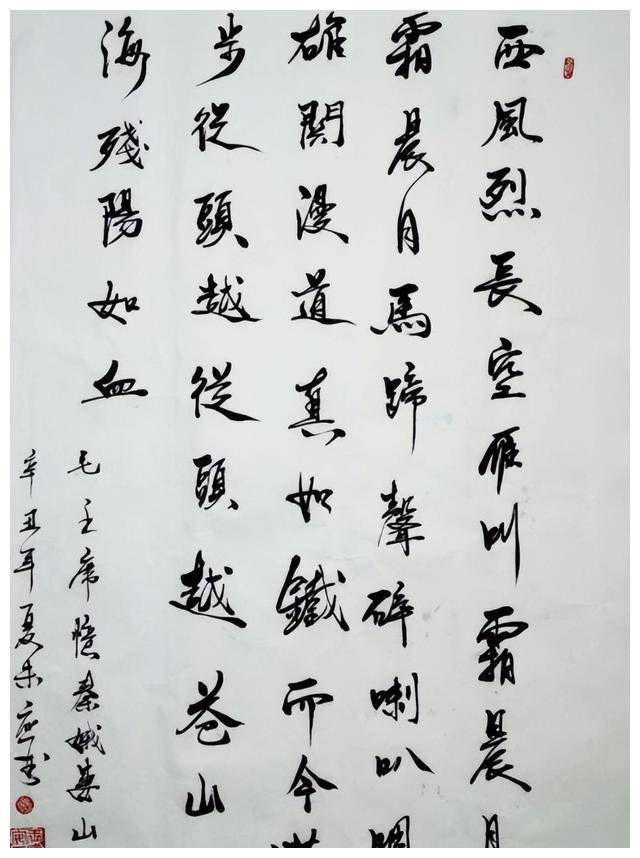 西風烈長空雁叫霜晨月
霜晨月馬蹄聲碎喇叭
雄關漫道真如鐵而今
步從頭越從頭越蒼山
海殘陽如血
毛主席憶秦娥婁山
辛丑年夏朱应书